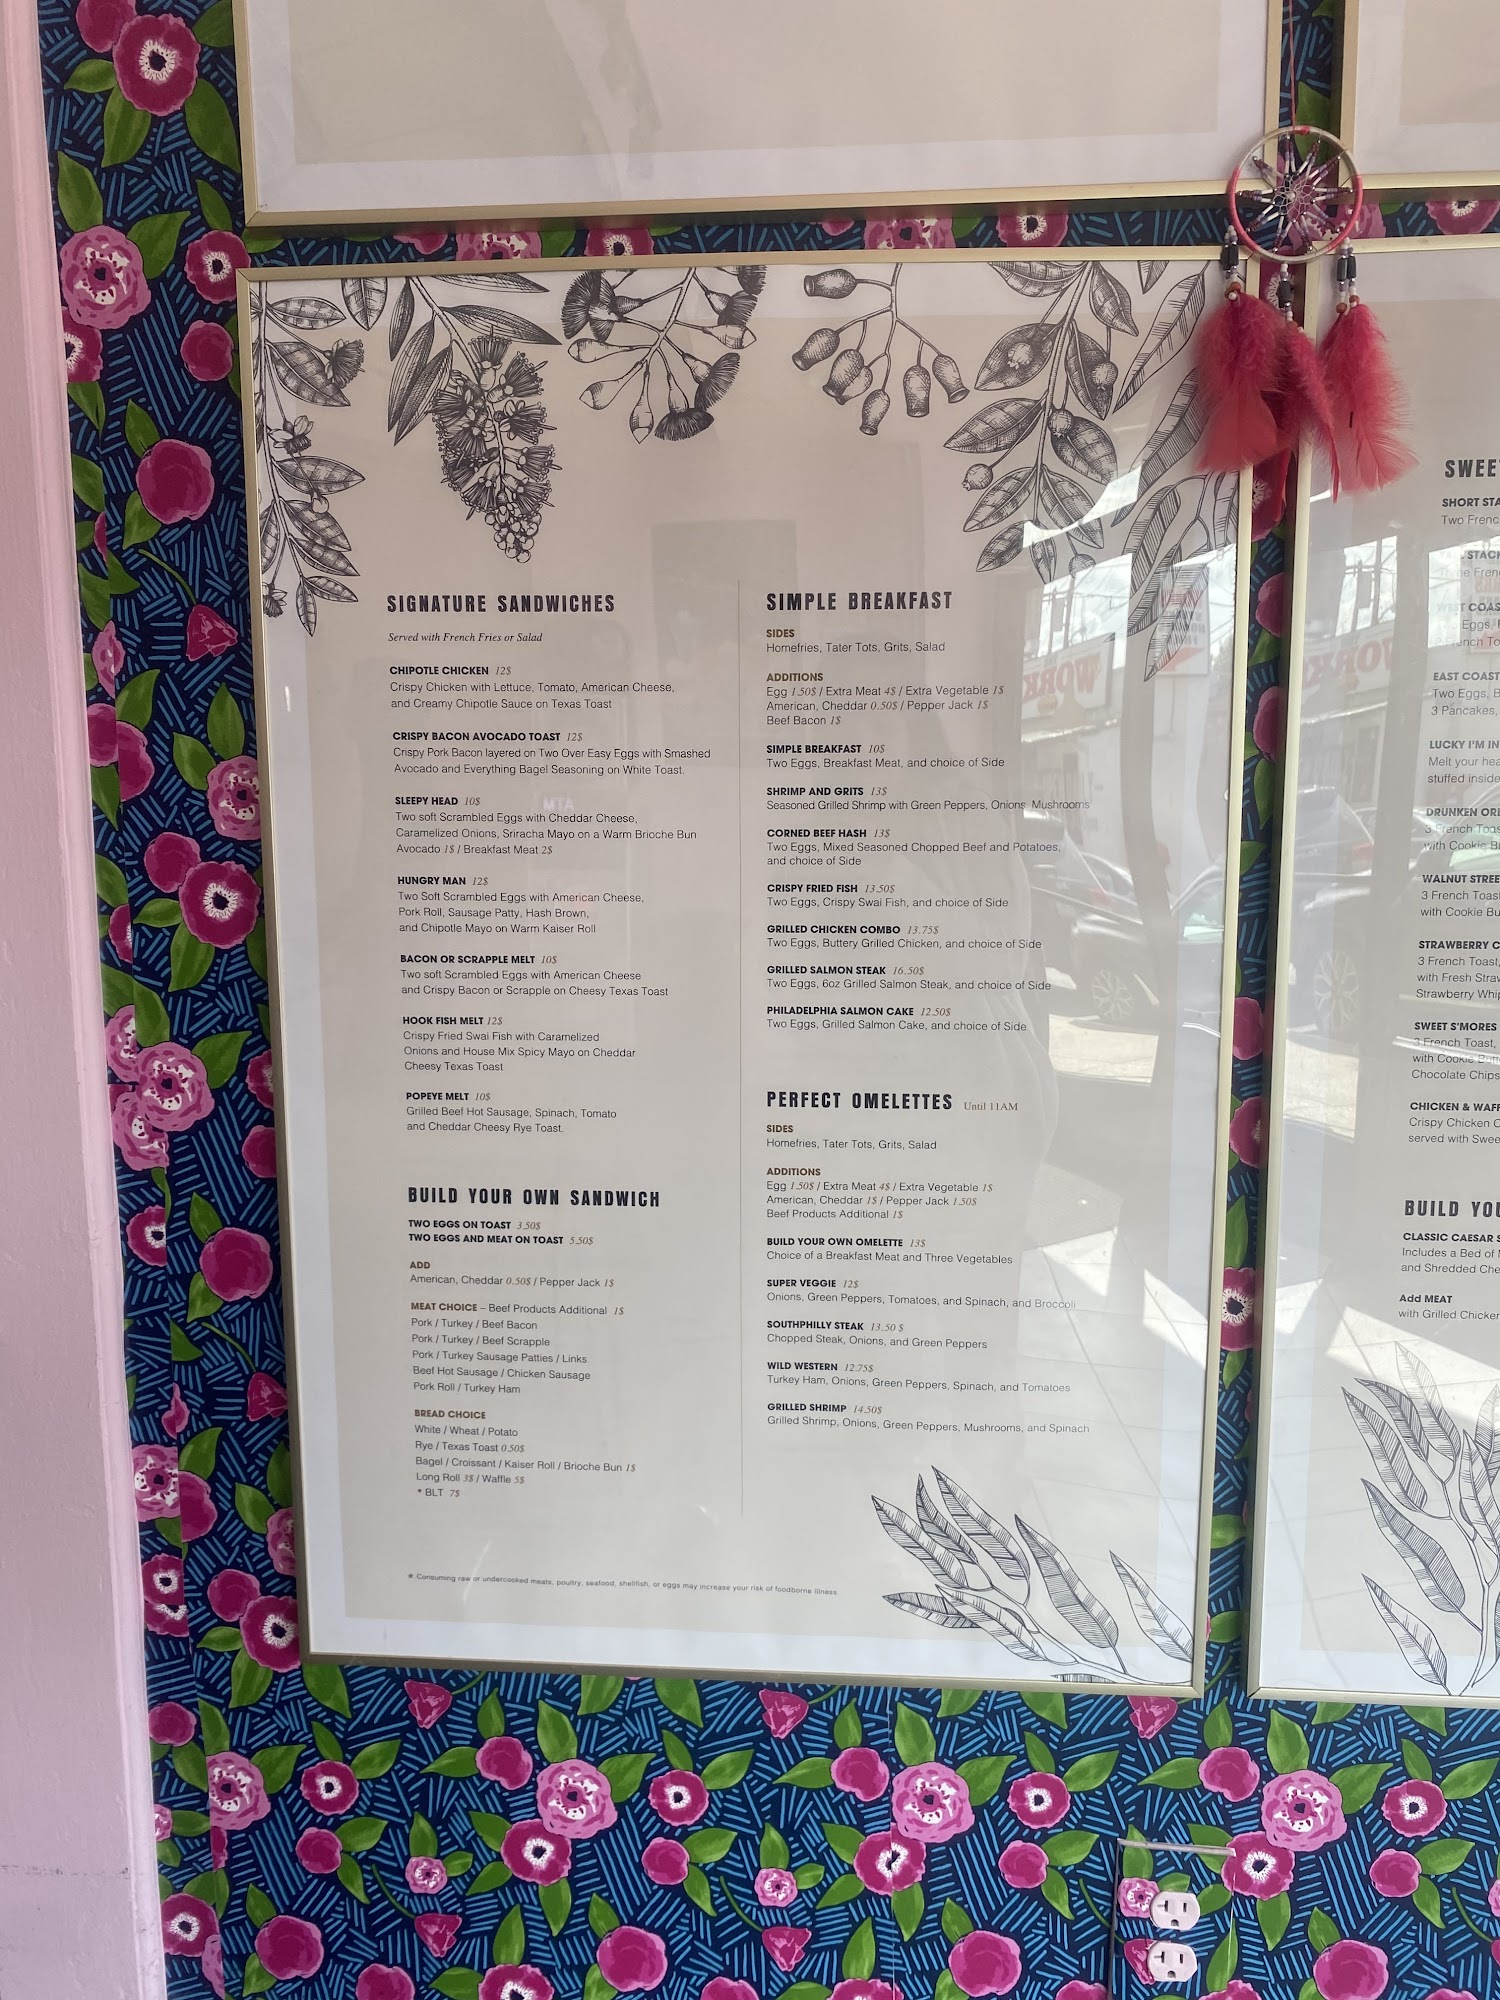 SIGNATURE SANDWICHES
Served with French Fries or Salad
CHIPOTLE CHICKEN 12$
Crispy Chicken with Lettuce, Tomato, American Cheese,
and Creamy Chipotle Sauce on Texas Toast
CRISPY BACON AVOCADO TOAST 12$
Crispy Pork Bacon layered on Two Over Easy Eggs with Smashed
Avocado and Everything Bagel Seasoning on White Toast.
SLEEPY HEAD 10$
Two soft Scrambled Eggs with Cheddar Cheese,
Caramelized Onions, Sriracha Mayo on a Warm Brioche Bun
Avocado 1$ / Breakfast Meat 2$
HUNGRY MAN 12$
Two Soft Scrambled Eggs with American Cheese,
Pork Roll, Sausage Patty, Hash Brown,
and Chipotle Mayo on Warm Kaiser Roll
BACON OR SCRAPPLE MELT 10$
Two soft Scrambled Eggs with American Cheese
and Crispy Bacon or Scrapple on Cheesy Texas Toast
HOOK FISH MELT 12$
Crispy Fried Swai Fish with Caramelized
Onions and House Mix Spicy Mayo on Cheddar
Cheesy Texas Toast
POPEYE MELT 10$
Grilled Beef Hot Sausage, Spinach, Tomato
and Cheddar Cheesy Rye Toast.
BUILD YOUR OWN SANDWICH
TWO EGGS ON TOAST 3.50$
TWO EGGS AND MEAT ON TOAST 5.50$
ADD
American, Cheddar 0.50$ / Pepper Jack 1$
MEAT CHOICE – Beef Products Additional 1$
Pork / Turkey / Beef Bacon
Pork / Turkey / Beef Scrapple
Pork / Turkey Sausage Patties / Links
Beef Hot Sausage / Chicken Sausage
Pork Roll / Turkey Ham
BREAD CHOICE
White / Wheat / Potato
Rye / Texas Toast 0.50$
Bagel / Croissant / Kaiser Roll / Brioche Bun 1$
Long Roll 3$ / Waffle 5$
* BLT 7$
* Consuming raw or undercooked meats, poultry, seafood, shellfish, or eggs may increase your risk of foodborne illness
SIMPLE BREAKFAST
SIDES
Homefries, Tater Tots, Grits, Salad
ADDITIONS
Egg 1.50$ / Extra Meat 4$ / Extra Vegetable 1$
American, Cheddar 0.50$ / Pepper Jack 1$
Beef Bacon 1$
SIMPLE BREAKFAST 10$
Two Eggs, Breakfast Meat, and choice of Side
SHRIMP AND GRITS 13$
Seasoned Grilled Shrimp with Green Peppers, Onions, Mushrooms
CORNED BEEF HASH 13$
Two Eggs, Mixed Seasoned Chopped Beef and Potatoes,
and choice of Side
CRISPY FRIED FISH 13.50$
Two Eggs, Crispy Swai Fish, and choice of Side
GRILLED CHICKEN COMBO 13.75$
Two Eggs, Buttery Grilled Chicken, and choice of Side
GRILLED SALMON STEAK 16.50$
Two Eggs, 6oz Grilled Salmon Steak, and choice of Side
PHILADELPHIA SALMON CAKE 12.50$
Two Eggs, Grilled Salmon Cake, and choice of Side
PERFECT OMELETTES Until 11AM
SIDES
Homefries, Tater Tots, Grits, Salad
ADDITIONS
Egg 1.50$ / Extra Meat 4$ / Extra Vegetable 1$
American, Cheddar 1$ / Pepper Jack 1.50$
Beef Products Additional 1$
BUILD YOUR OWN OMELETTE 13$
Choice of a Breakfast Meat and Three Vegetables
SUPER VEGGIE 12$
Onions, Green Peppers, Tomatoes, and Spinach, and Broccoli
SOUTHPHILLY STEAK 13.50 $
Chopped Steak, Onions, and Green Peppers
WILD WESTERN 12.75$
Turkey Ham, Onions, Green Peppers, Spinach, and Tomatoes
GRILLED SHRIMP 14.50$
Grilled Shrimp, Onions, Green Peppers, Mushrooms, and Spinach
SHORT
Two
EAST COAST
Two Eggs,
3 Pancakes,
LUCKY I'M IN
Melt your
stuffed inside
DRUNKEN
3 French
with Cookie
WALNUT
3 French Toast
with Cookie
STRAWBERRY
3 French Toast,
with Fresh
Strawberry
SWEET S'MORES
3 French Toast,
with Cookie
Chocolate Chips
CHICKEN &
Crispy Chicken
served with
BUILD
CLASSIC CAESAR
Includes a Bed of
and Shredded
Add MEAT
with Grilled Chicken